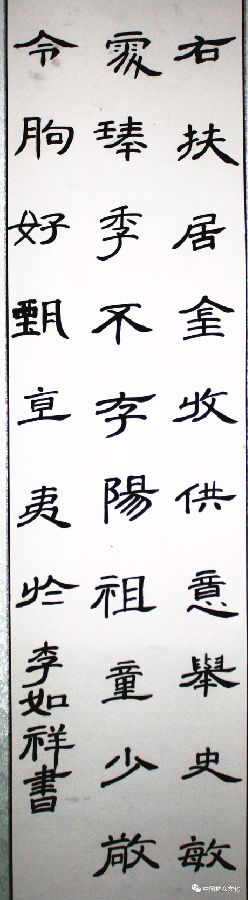 右扶居金收供意舉史敏
季不存陽祖童少敞
令朐好亘夷於
李如祥書
中国群众文化